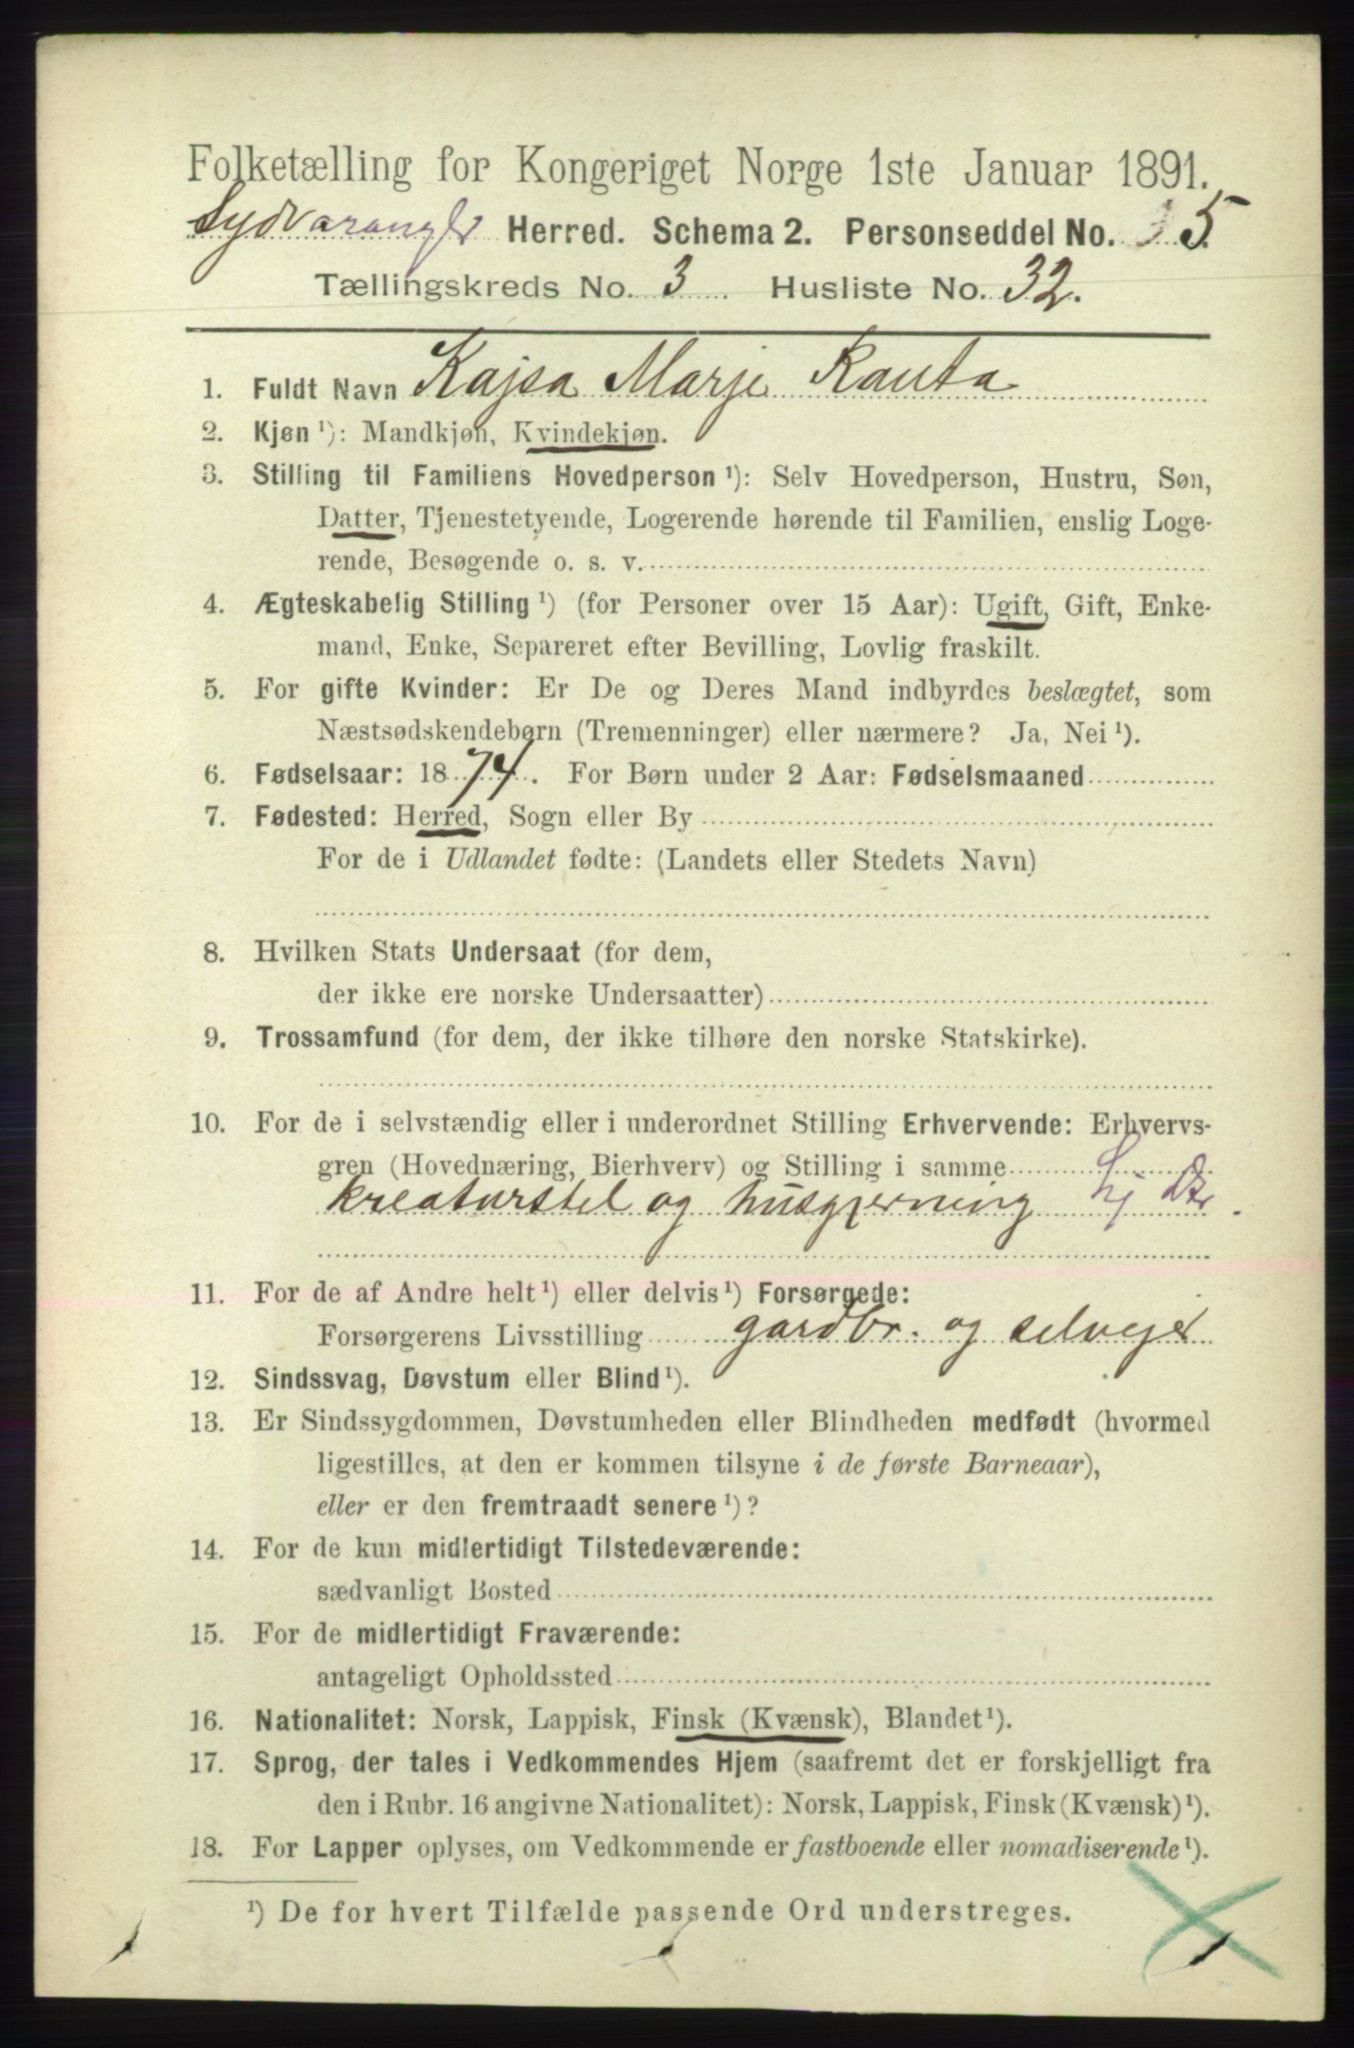 Folketælling for Kongeriget Norge 1ste Januar 1891.
Sydvaranger Herred. Schema 2. Personseddel No. 5.
Tællingskreds No. 3 Husliste No. 32.
1. Fuldt Navn Kajsa Marje Rauta
2. Kjøn ¹): Mandkjøn, Kvindekjøn.
3. Stilling til Familiens Hovedperson ¹): Selv Hovedperson, Hustru, Søn,
Datter, Tjenestetyende, Logerende hørende til Familien, enslig Loge-
rende, Besøgende o. s. v.
4. Ægteskabelig Stilling ¹) (for Personer over 15 Aar): Ugift, Gift, Enke-
mand, Enke, Separeret efter Bevilling, Lovlig fraskilt.
5. For gifte Kvinder: Er De og Deres Mand indbyrdes beslægtet, som
Næstsødskendebørn (Tremenninger) eller nærmere? Ja, Nei ¹).
6. Fødselsaar: 1874. For Børn under 2 Aar: Fødselsmaaned
7. Fødested: Herred, Sogn eller By
For de i Udlandet fødte: (Landets eller Stedets Navn)
8. Hvilken Stats Undersaat (for dem,
der ikke ere norske Undersaatter)
9. Trossamfund (for dem, der ikke tilhøre den norske Statskirke).
10. For de i selvstændig eller i underordnet Stilling Erhvervende: Erhvervs-
gren (Hovednæring, Bierhverv) og Stilling i samme
kreaturstel og husgjerning
11. For de af Andre helt ¹) eller delvis ¹) Forsørgede:
Forsørgerens Livsstilling gardbr. og selvejer
12. Sindssvag, Døvstum eller Blind ¹).
13. Er Sindssygdommen, Døvstumheden eller Blindheden medfødt (hvormed
ligestilles, at den er kommen tilsyne i de første Barneaar),
eller er den fremtraadt senere ¹)?
14. For de kun midlertidigt Tilstedeværende:
sædvanligt Bosted
15. For de midlertidigt Fraværende:
antageligt Opholdssted
16. Nationalitet: Norsk, Lappisk, Finsk (Kvænsk), Blandet ¹).
17. Sprog, der tales i Vedkommendes Hjem (saafremt det er forskjelligt fra
den i Rubr. 16 angivne Nationalitet): Norsk, Lappisk, Finsk (Kvænsk) ¹).
18. For Lapper oplyses, om Vedkommende er fastboende eller nomadiserende ¹).
¹) De for hvert Tilfælde passende Ord understreges.